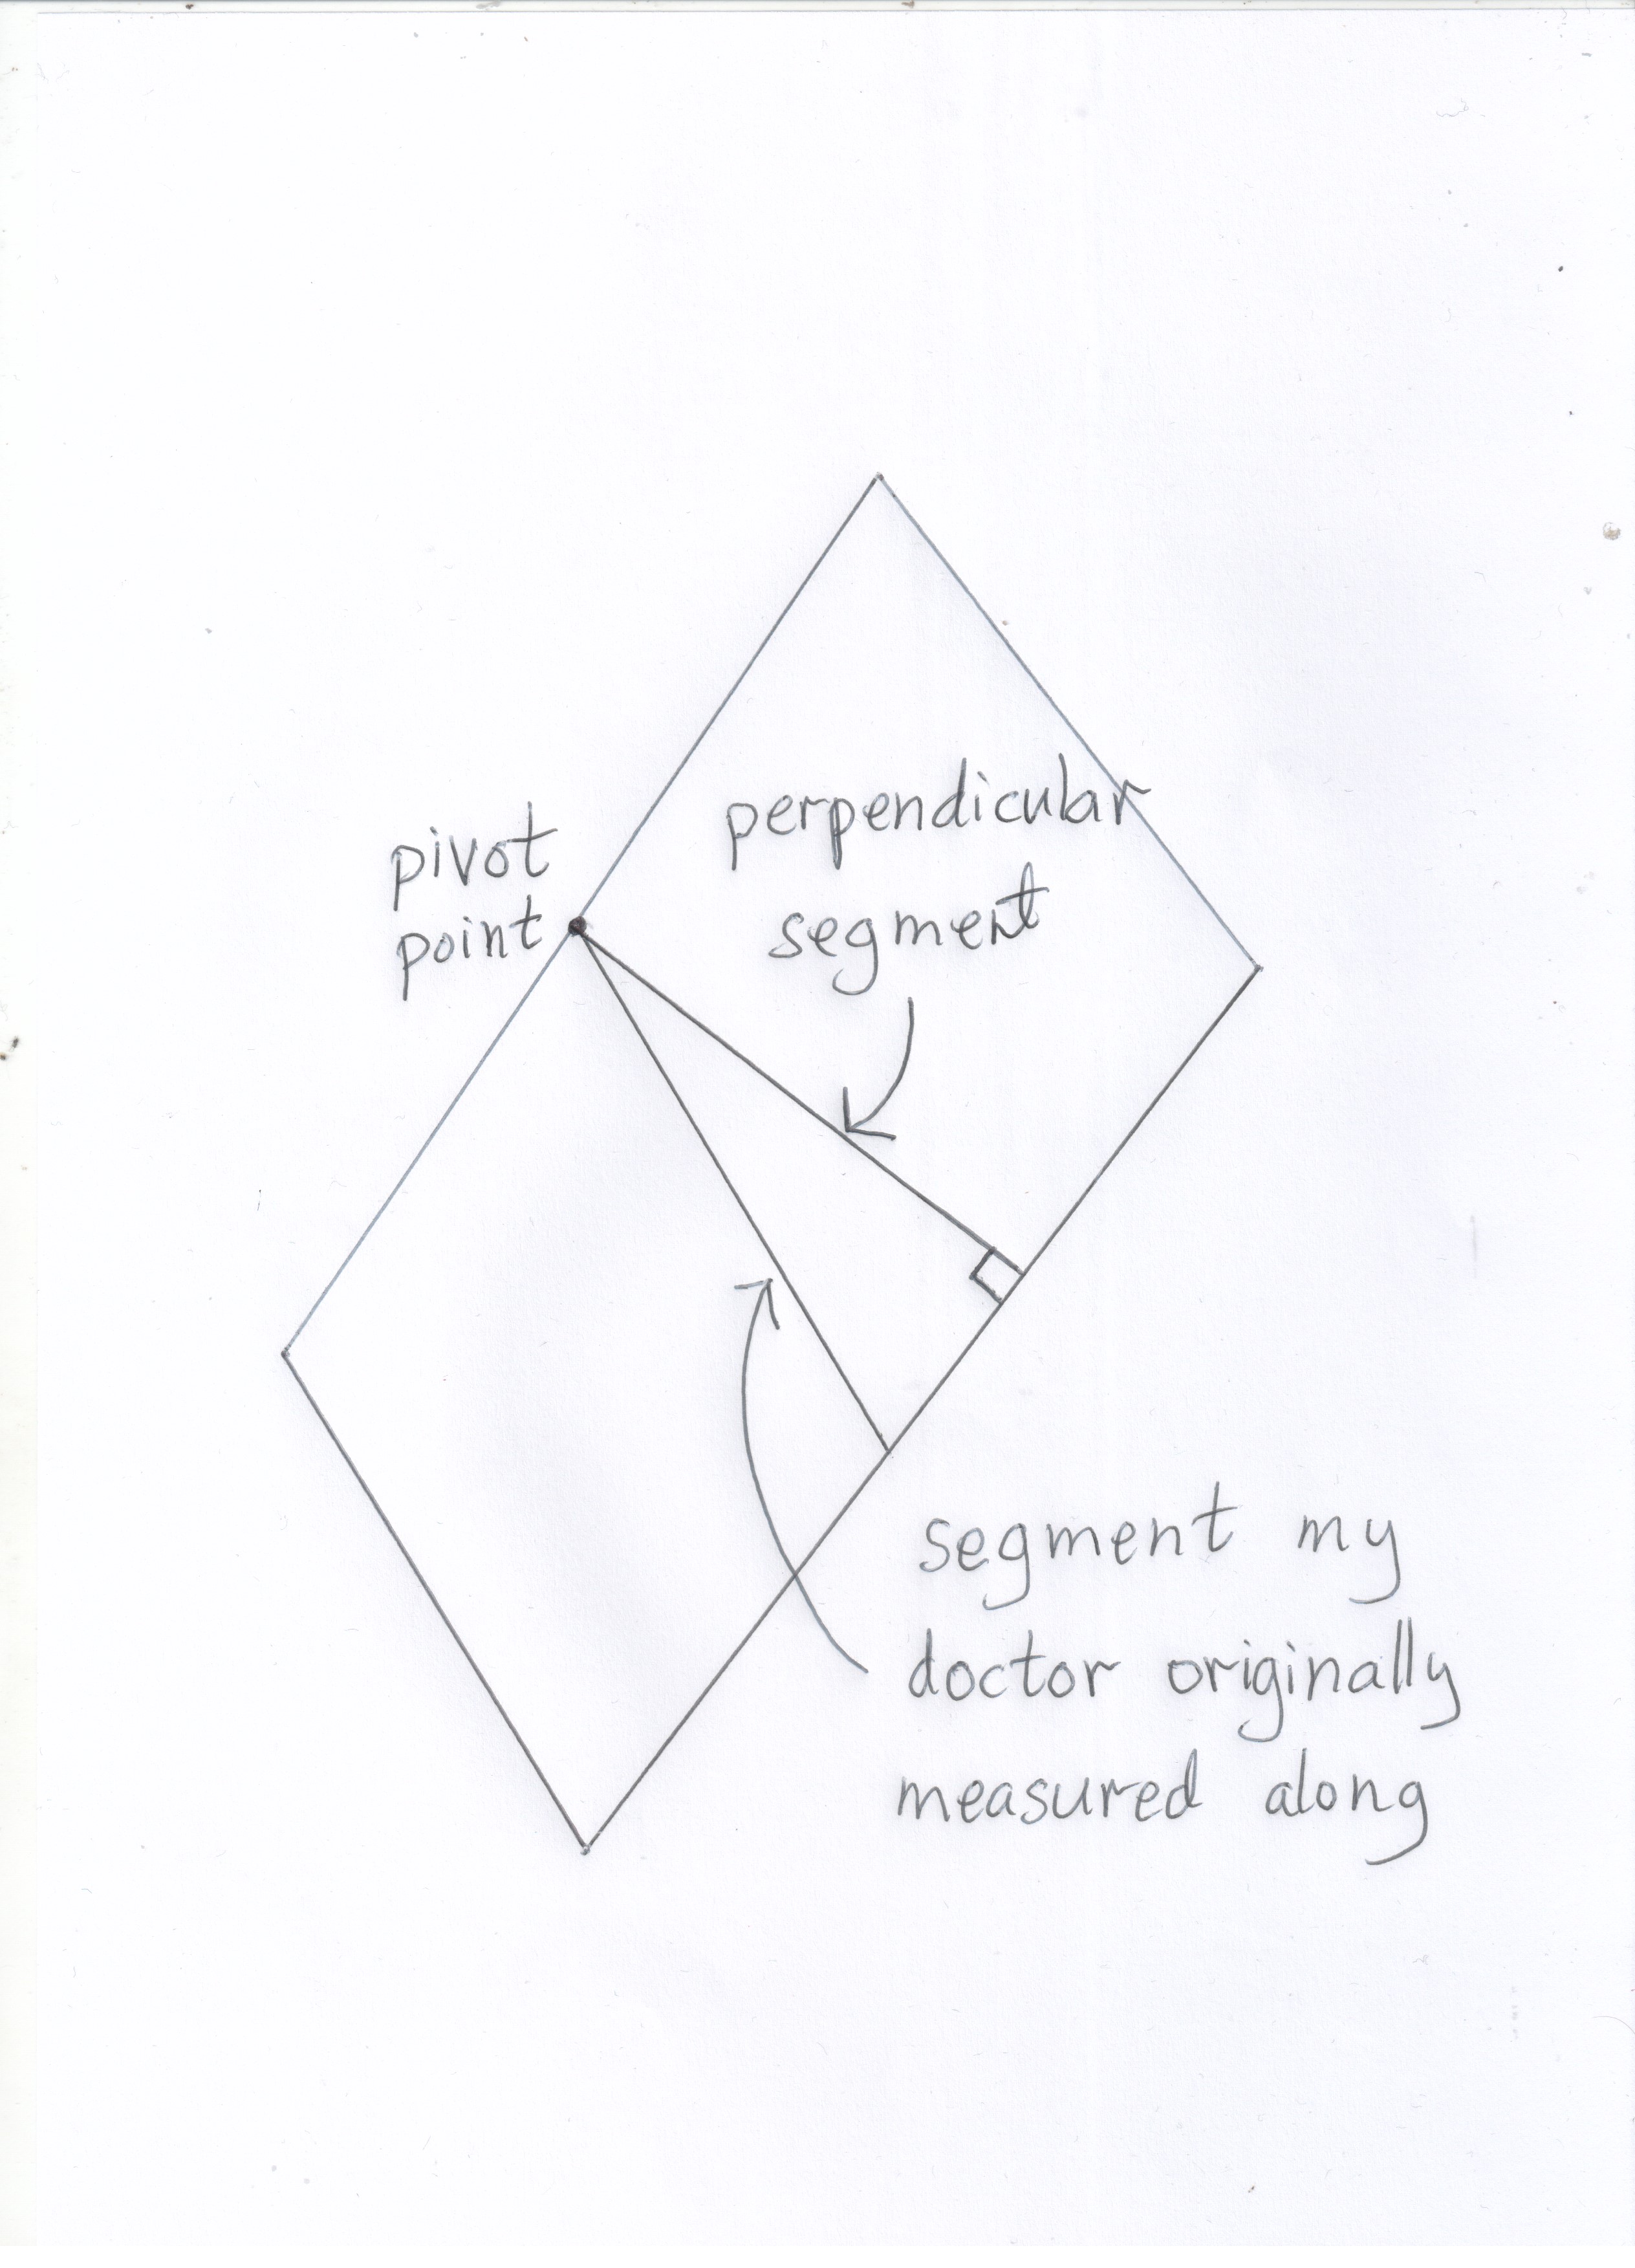 pivot
point
perpendicular
segment
segment my
doctor originally
measured along